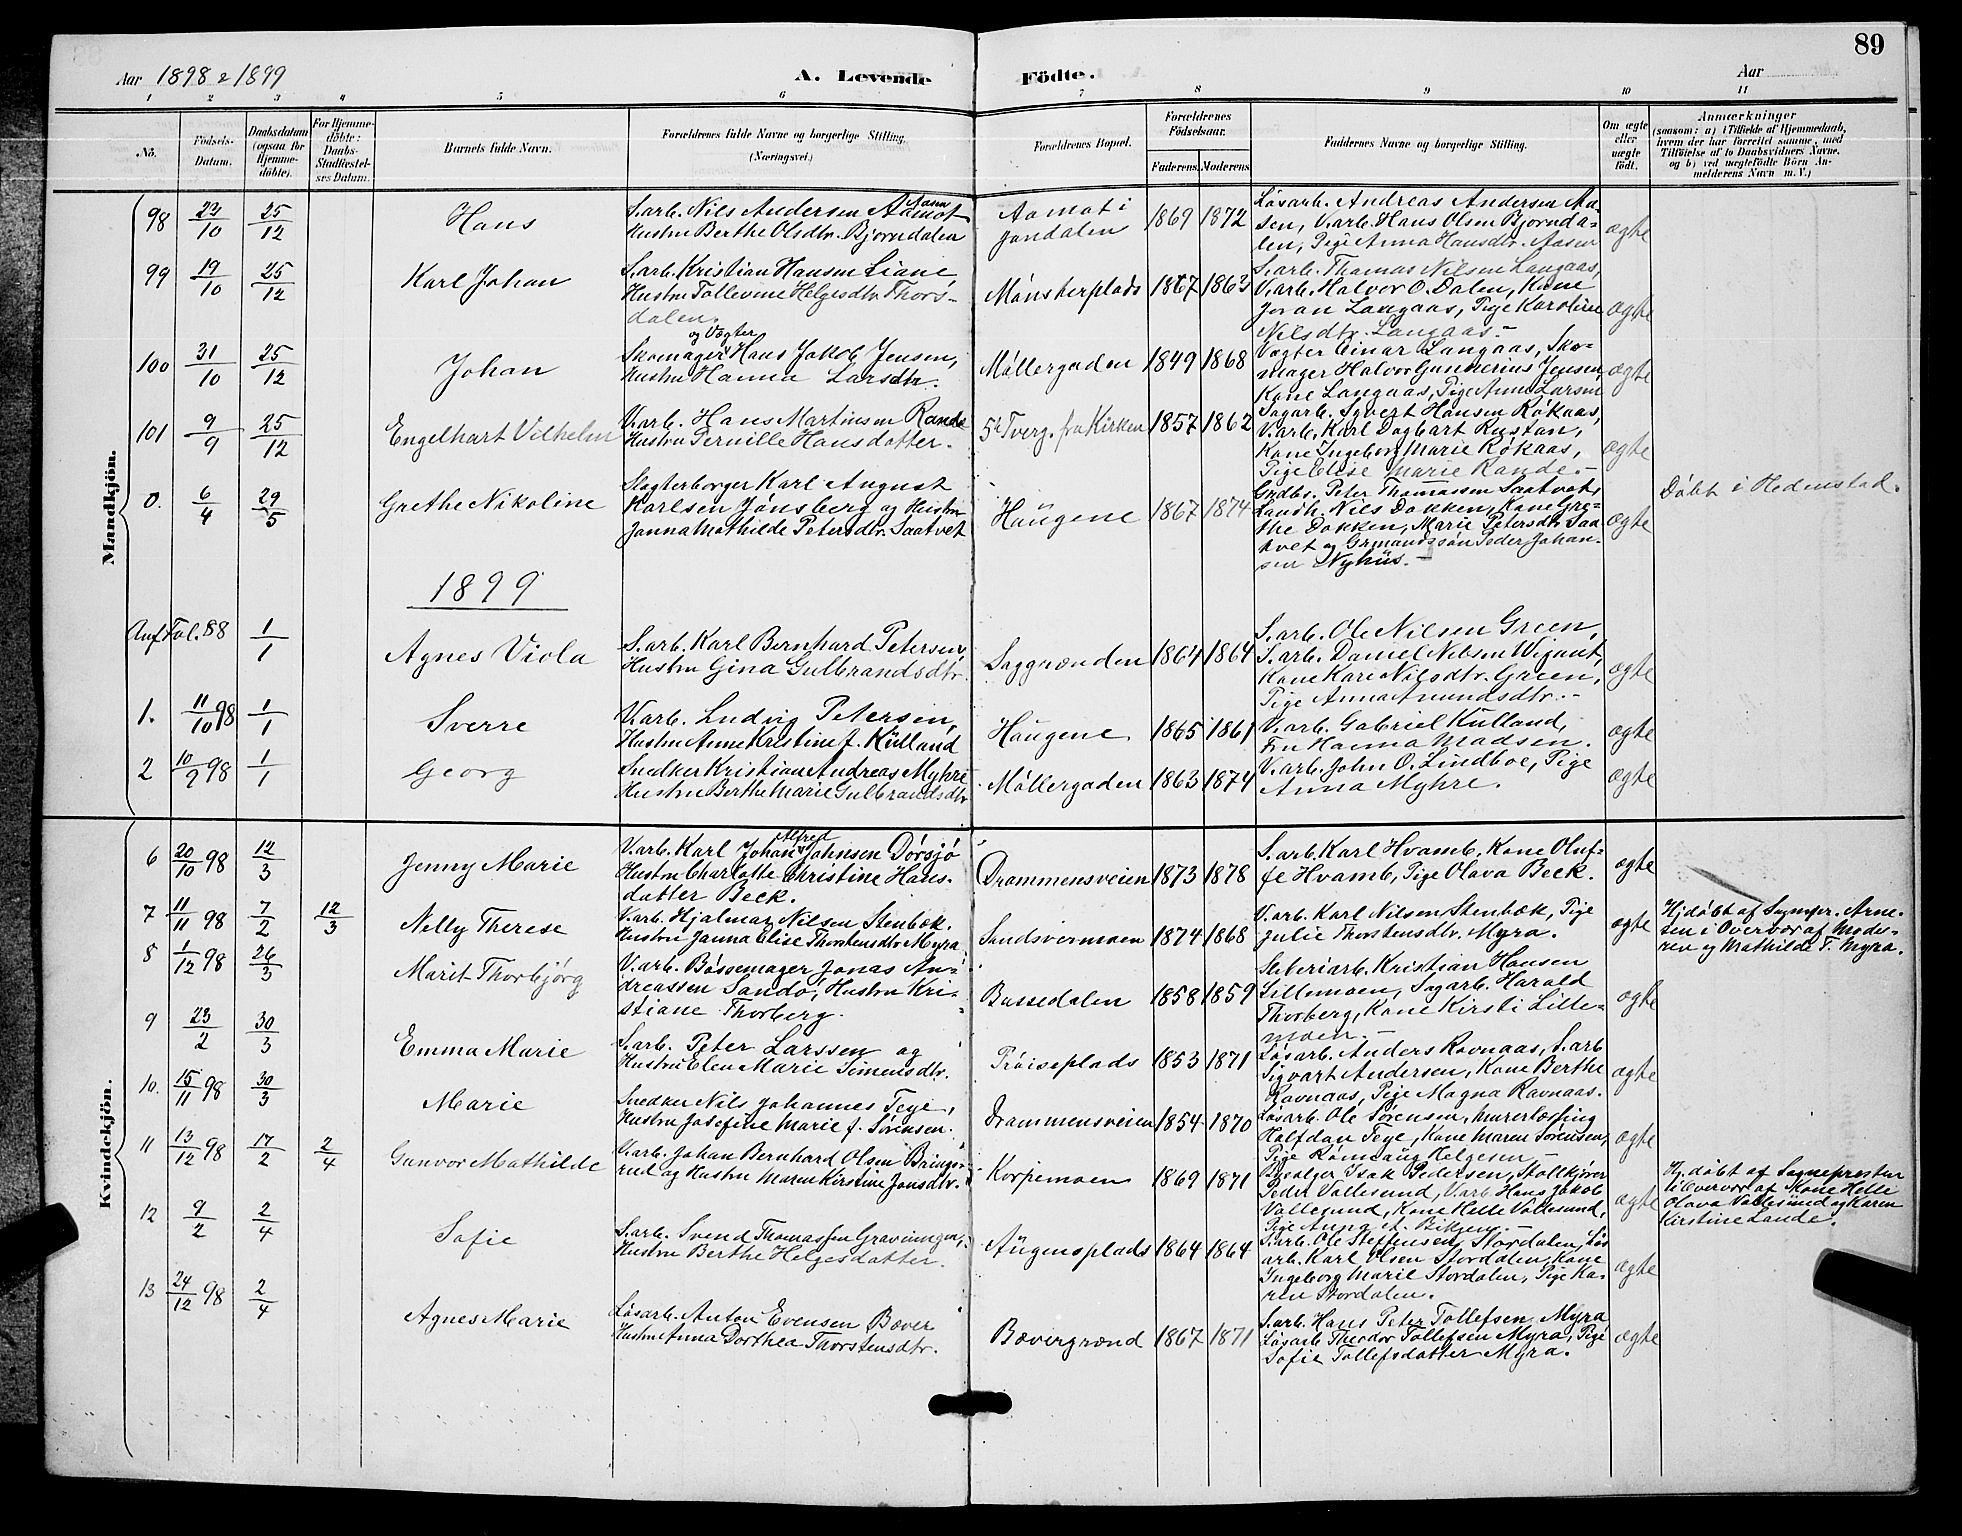 89
Aar 1898 & 1899
A. Levende Födte.
Aar
1 2 3 4 5 6 7 8 9 10 11
No.
Födsels-Datum.
Daabsdatum (ogsaa for Hjemme-döbte).
For Hjemme-döbte: Daabs-Stadfæstel-ses Datum.
Barnets fulde Navn.
Forældrenes fulde Navne og borgerlige Stilling. (Næringsvei.)
Forældrenes Bopæl.
Forældrenes Födselsaar.
Faderens. Moderens.
Faddernes Navne og borgerlige Stilling.
Om ægte eller uægte födt.
Anmærkninger
(saasom: a) i Tilfælde af Hjemmedaab,
hvem der har forrettet samme, med
Tilföielse af to Daabsvidners Navne,
og b) ved uægtefödte Börn An-
melderens Navn m. V.)
Mandkjön.
98 23/10 25/12 Hans
S.arb. Nils Andersen Aamot
Hustru Berthe Olsdtr. Bjørndalen
Aamot i
Jondalen
1869 1872
Løsarb. Andreas Andersen Aa-
sen, V.arb. Hans Olsen Bjørnda-
len, Pige Anna Hansdtr. Aasen
ægte
99 19/10 25/12 Karl Johan
S.arb. Kristian Hansen Liane,
Hustru Tollevine Helgesdtr. Thors-
dalen.
Mønsterplads 1867 1863
S.arb. Thomas Nilsen Langaas,
V.arb. Halvor O. Dalen, Kone
Joran Langaas, Pige Karoline
Nilsdtr. Langaas.-
ægte
100 31/10 25/12 Johan
og Vægter
Skomager Hans Jakob Jensen,
Hustru Hanna Larsdtr.
Møllergaden 1849 1868
Vægter Einar Langaas, Sko-
mager Halvor Gunnerius Jensen,
Kone Langaas, Pige Anne Larsen
ægte
101 9/9 25/12 Engelhart Vilhelm
V.arb. Hans Martinsen Rande
Hustru Pernille Hansdatter.
5te Tverg. fra Kirken 1857 1862
Sagarb. Syvert Hansen Røkaas,
V.arb. Karl Dagbart Rustan,
Kone Ingeborg Marie Røkaas,
Pige Elise Marie Rande.-
ægte
0. 6/4 29/5 Grethe Nikoline
Slagterborger Karl August
Karlsen Jønsberg og Hustru
Janna Mathilde Petersdtr. Saatvet
Haugene 1867 1874
Grdbr. Peter Thomassen Saatvet,
Landh. Nils Dokken, Kone Gre-
the Dokken, Marie Petersdtr. Saa
tvet og Grmandssøn Peder Johan-
sen Nyhus.-
ægte
Døbt i Hedenstad.
1899
Anf. Fol. 88 1/1 Agnes Viola
S.arb. Karl Bernhard Petersen,
Hustru Gina Gulbrandsdtr.
Saggrænden 1864 1864
S.arb. Ole Nilsen Green,
S.arb. Daniel Nilsen Wigant,
Kone Kari Nilsdtr. Green,
Pige Anna Amundsdtr.-
ægte
1. 11/10 98 1/1 Sverre
V.arb. Ludvig Petersen,
Hustru Anne Kristine f. Külland
Haugene 1865 1861
V.arb. Gabriel Külland,
Fru Hanna Madsen.
ægte
2 10/9 98 1/1 Georg
Snedker Kristian Andreas Myhre
Hustru Berthe Marie Gulbrandsdtr.
Møllergaden 1863 1874
V.arb. John O. Lindboe, Pige
Anna Myhre.
ægte
Kvindekjön.
6 20/10 98 12/3 Jenny Marie
Alfred
V.arb. Karl Johan Johnsen Dørsjø
Hustru Charlotte Christine Hans-
datter Beck.
Drammensveien 1873 1878
S.arb. Karl Hvamb, Kone Oluf-
fe Hvamb, Pige Olava Beck.
ægte
7 11/11 98 7/2 12/3 Nelly Therese
V.arb. Hjalmar Nilsen Stenbæk.
Hustru Janna Elise Thorstensdtr. Myra
Sandsværmoen 1874 1868
V.arb. Karl Nilsen Stenbæk, Pige
Julie Thorstensdtr. Myra.
ægte
Hjdøbt af Sognepr. Arne-
sen i Overvær af Mode-
ren og Mathilde T. Myra.
8 1/12 98 26/3 Marit Thorbjørg
V.arb. Bøssemager Jonas An-
dreassen Sandø, Hustru Kri-
stiane Thorberg.
Bussedalen 1858 1859
Sliberiarb. Kristian Hansen
Lillemoen, Sagarb. Harald
Thorberg, Kone Kirsti Lille-
moen.-
ægte
9 23/2 30/3 Emma Marie
S.arb. Peter Larssen og
Hustru Elen Marie Simensdtr.
Prøiseplads 1853 1871
Løsarb. Anders Ravnaas, S.arb
Sigvart Andersen, Kone Berthe
Ravnaas, Pige Magna Ravnaas.
ægte
10. 15/11 98 30/3 Marie
Snedker Nils Johannes Teye,
Hustru Josefine Marie f. Sørensen.
Drammensveien 1854 1870
Løsarb. Ole Sørensen, Murerlærling
Halfdan Teye, Kone Maren Sørensen,
Pige Rømaug Helgesen.-
ægte
11 13/12 98 17/2 2/4 Gunvor Mathilde
V.arb. Johan Bernhard Olsen Bringe-
rud og Hustru Maren Kirstine Jonsdtr.
Korpemoen 1869 1871
Isak Pedersen, Stollkjører
Peder Vallesund, V.arb Hans Jakob
Vallesund, Kone Helle Vallesund,
Pige Anna A.
ægte
Hj. døbt af Sognepresten
i Overvær af Kone Helle
Olava Vallesund og Karen
Kirstine Lande.
12 9/2 2/4 Sofie
S.arb. Svend Thomassen Gravningen,
Hustru Berthe Helgesdatter.
Augensplads 1864 1864
S.arb. Ole Steffensen Stordalen, Løs
arb. Karl Olsen Stordalen, Kone
Ingeborg Marie Stordalen, Pige Ka-
ren Stordalen.
ægte
13 24/12 98 2/4 Agnes Marie
Løsarb. Anton Evensen Bæver
Hustru Anna Dorthea Thorstensdtr.
Bævergrænd 1867 1871
S.arb. Hans Peter Tollefsen Myra
Løsarb. Theodor Tollefsen Myra, Pige
Sofie Tollefsdatter Myra.
ægte